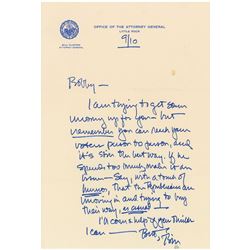 OFFICE OF THE ATTORNEY GENERAL
LITTLE ROCK
BILL CLINTON
ATTORNEY GENERAL
9/10
Bobby —
I am trying to get some
money up for you — but
remember you can reach your
voters person to person, and
it's still the best way. If he
spends too much, make it an
issue — Say, with a tone of
humor, that the Republicans are
moving in and trying to buy
their way, as usual!
I'll come help if you think
I can — Best,
Bill